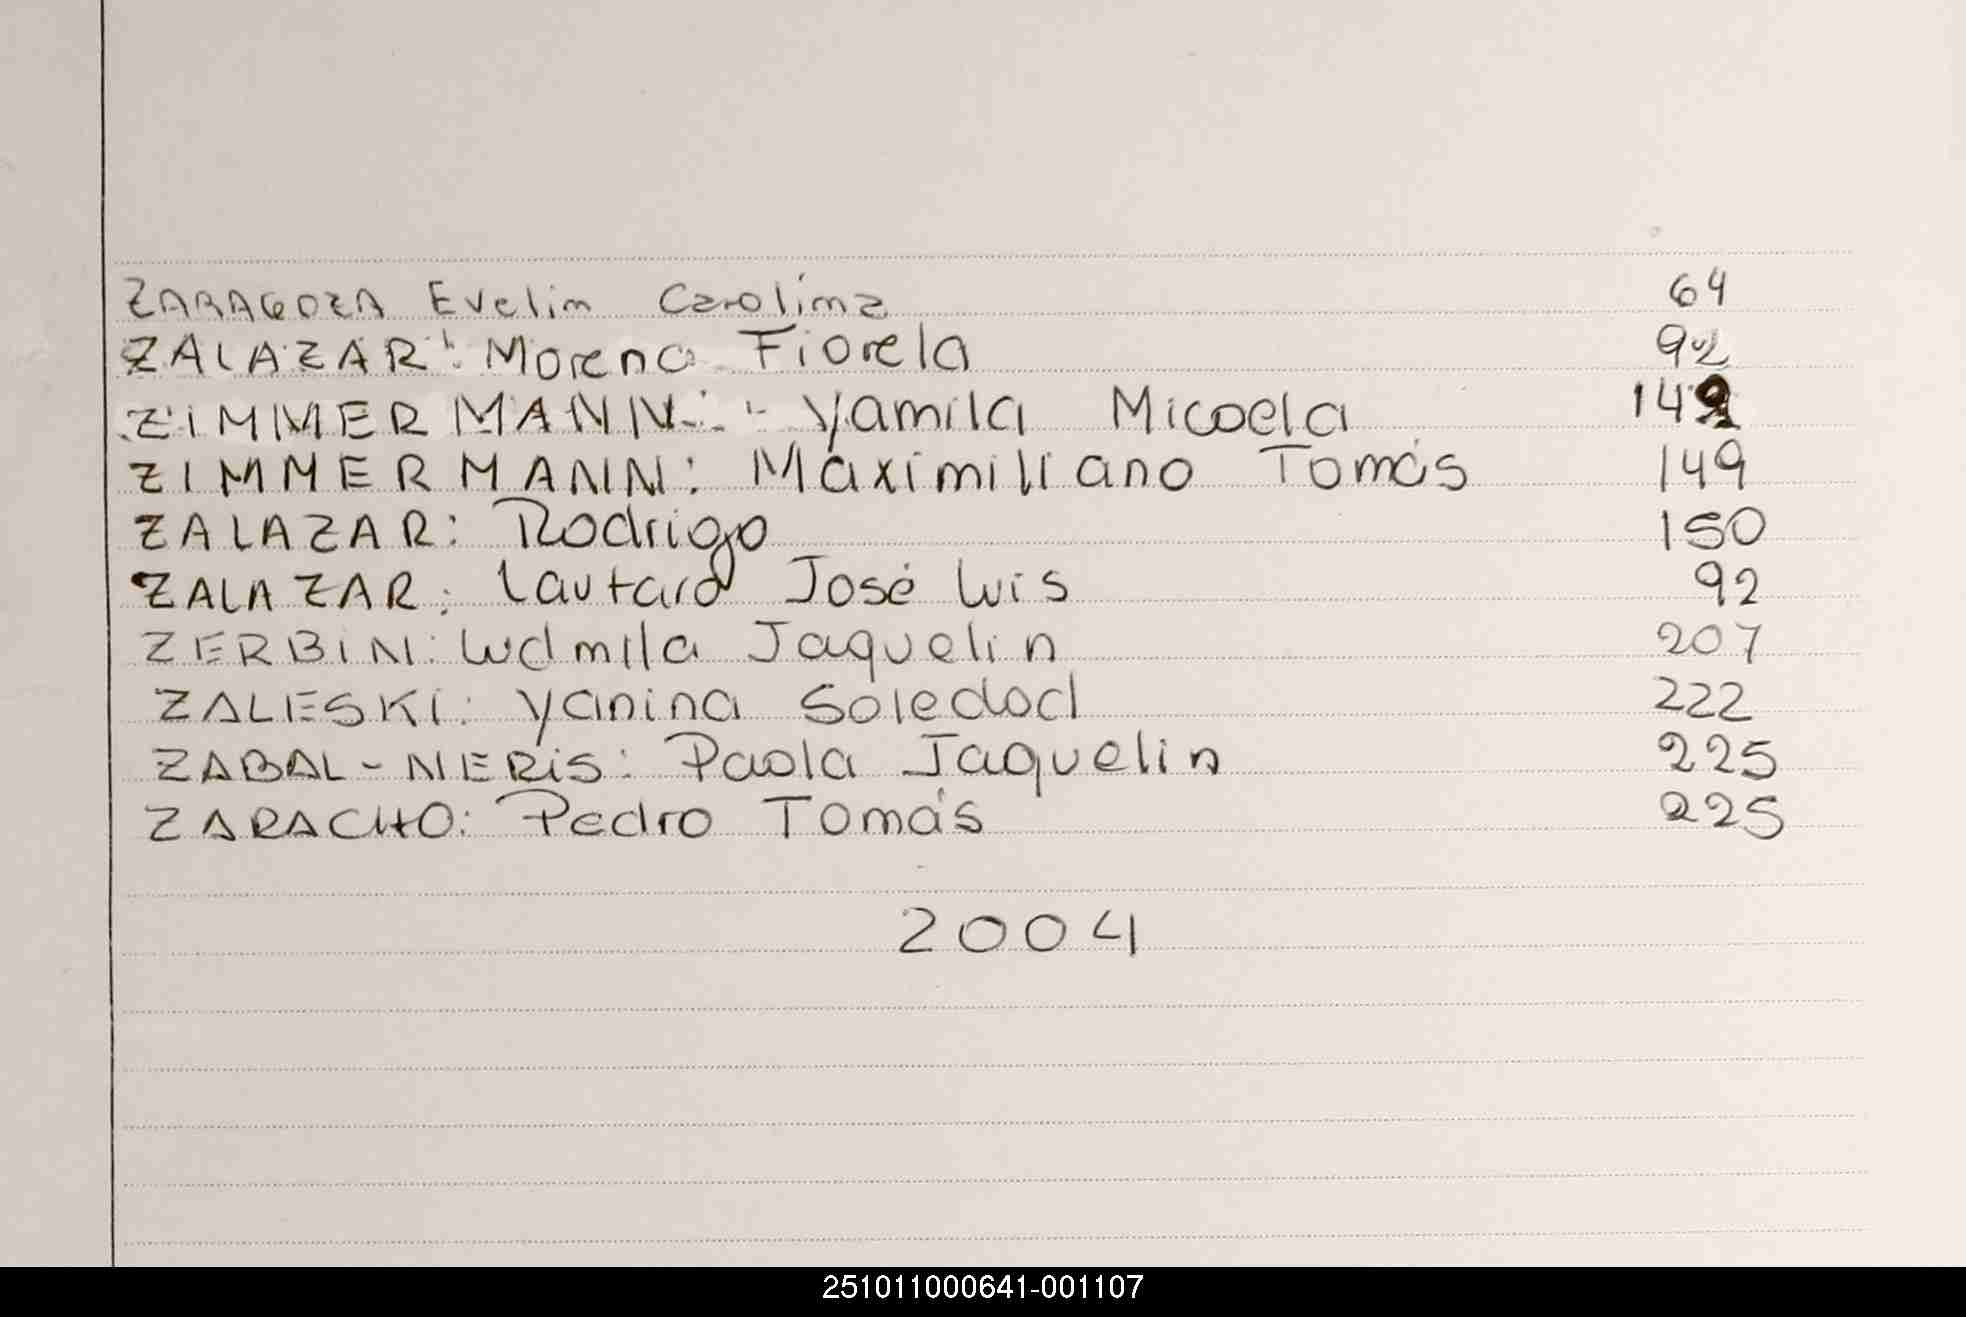 ZARAGOZA Evelin Carolina 64
ZALAZAR: Morena Fiorela 92
ZIMMERMANN: - Yamila Micaela 149
ZIMMERMANN: Maximiliano Tomás 149
ZALAZAR: Rodrigo 150
ZALAZAR: Lautaro José Luis 92
ZERBIN: Ludmila Jaquelin 207
ZALESKI: Yanina Soledad 222
ZABAL-NERIS: Paola Jaquelin 225
ZARACHO: Pedro Tomás 225
2004
251011000641-001107